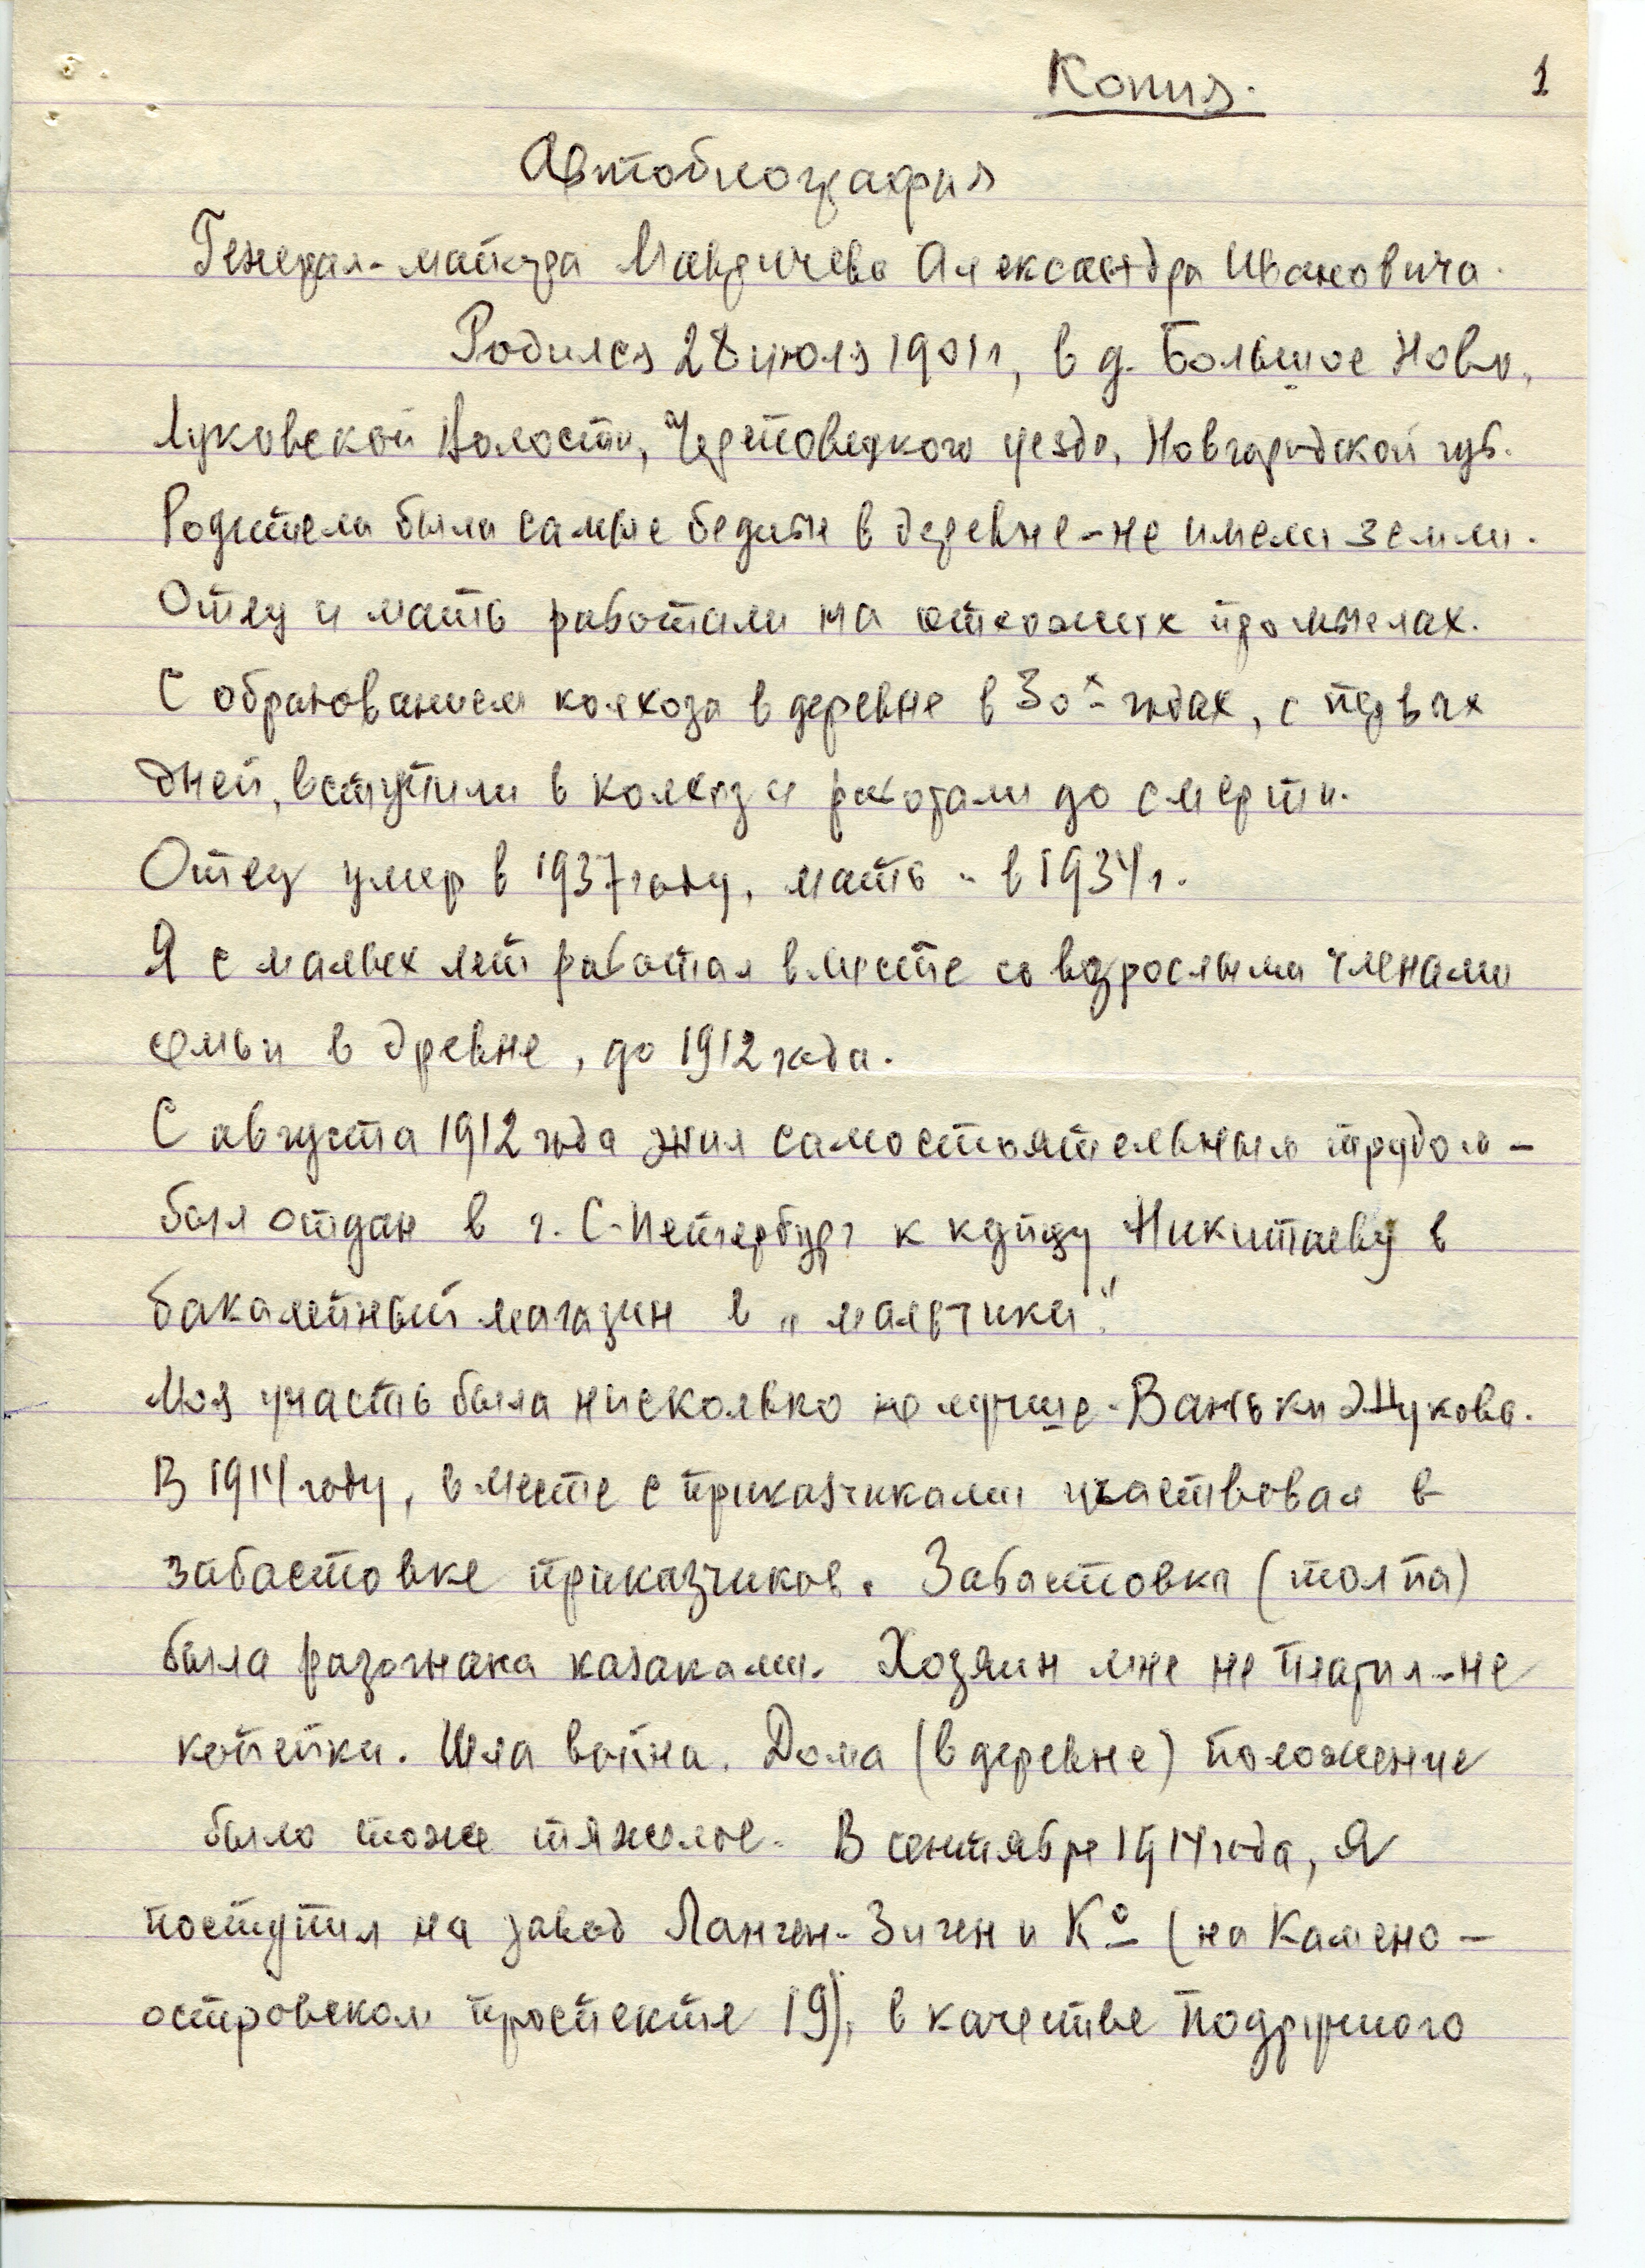 Копия.
1
Автобиография
Генерал-майора Мавричева Александра Ивановича.
Родился 28 июля 1901 г, в д. Большое Ново,
Луковской Волости, Череповецкого уезда, Новгородской губ.
Родители были самые бедные в деревне-не имели земли.
Отец и мать работали на отхожих промыслах.
С образованием колхоза в деревне в 30х годах, с первых
дней, вступили в колхоз и работали до смерти.
Отец умер в 1937 году, мать - в 1934 г.
Я с малых лет работал вместе со взрослыми членами
семьи в древне, до 1912 года.
С августа 1912 года жил самостоятельным трудом -
был отдан в г. С-Петербург к купцу Никитаеву в
бакалейный магазин в „мальчики".
Моя участь была нисколько не лучше - Ваньки Жукова.
В 1914 году, вместе с приказчиками участвовал в
забастовке приказчиков. Забастовка (толпа)
была разогнана казаками. Хозяин мне не платил-не
копейки. Шла война. Дома (в деревне) положение
было тоже тяжелое. В сентябре 1914 года, я
поступил на завод Ланген-Зиген и Ко (на Камено -
островском проспекте 19), в качестве подручного